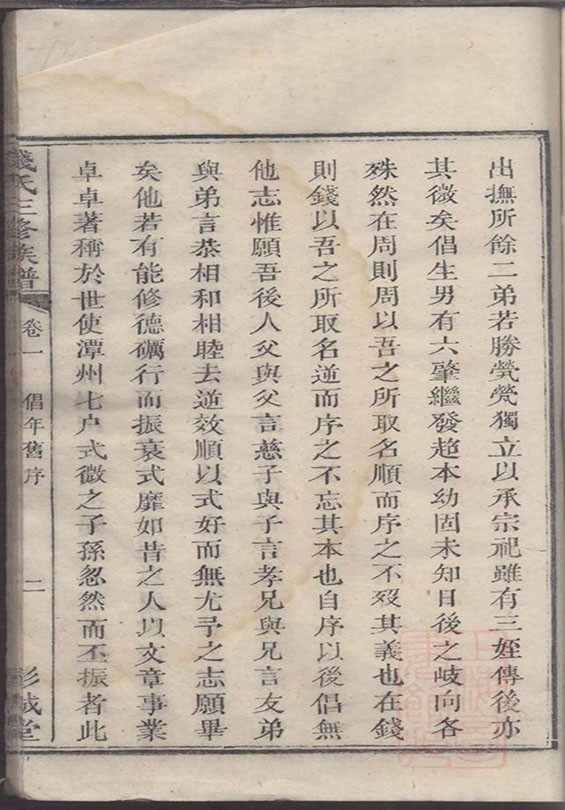 出撫所餘二弟若勝煢煢獨立以承宗祀雖有三姪傳後亦
其微矣倡生男有六肇繼發超本幼固未知日後之岐向各
殊然在周則周以吾之所取名順而序之不歿其義也在錢
則錢以吾之所取名逆而序之不忘其本也自序以後倡無
他志惟願吾後人父與父言慈子與子言孝兄與兄言友弟
與弟言恭相和相睦去逆效順以式好而無尤予之志願畢
矣他若有能修德礪行而振衰式靡如昔之人以文章事業
卓卓著稱於世使潭州七户式微之子孫忽然而丕振者此
錢氏三修族譜 卷一 倡年舊序 二 彭城堂